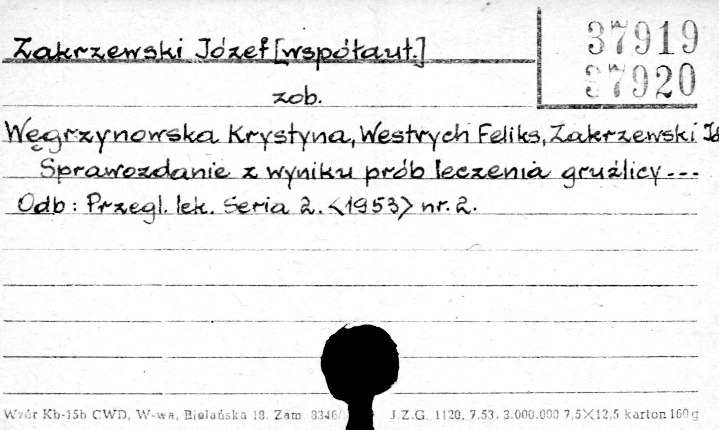 Zakrzewski Józef [współaut.]
37919
37920
zob.
Węgrzynowska Krystyna, Westrych Feliks, Zakrzewski Jó
Sprawozdanie z wyniku prób leczenia gruźlicy ---
Odb: Przegl. lek. Seria 2. <1953> nr. 2.
Wzór Kb-15b CWD, W-wa, Bielańska 18. Zam. 8346/ J.Z.G. 1120. 7.53. 3.000.000 7,5×12,5 karton 160 g